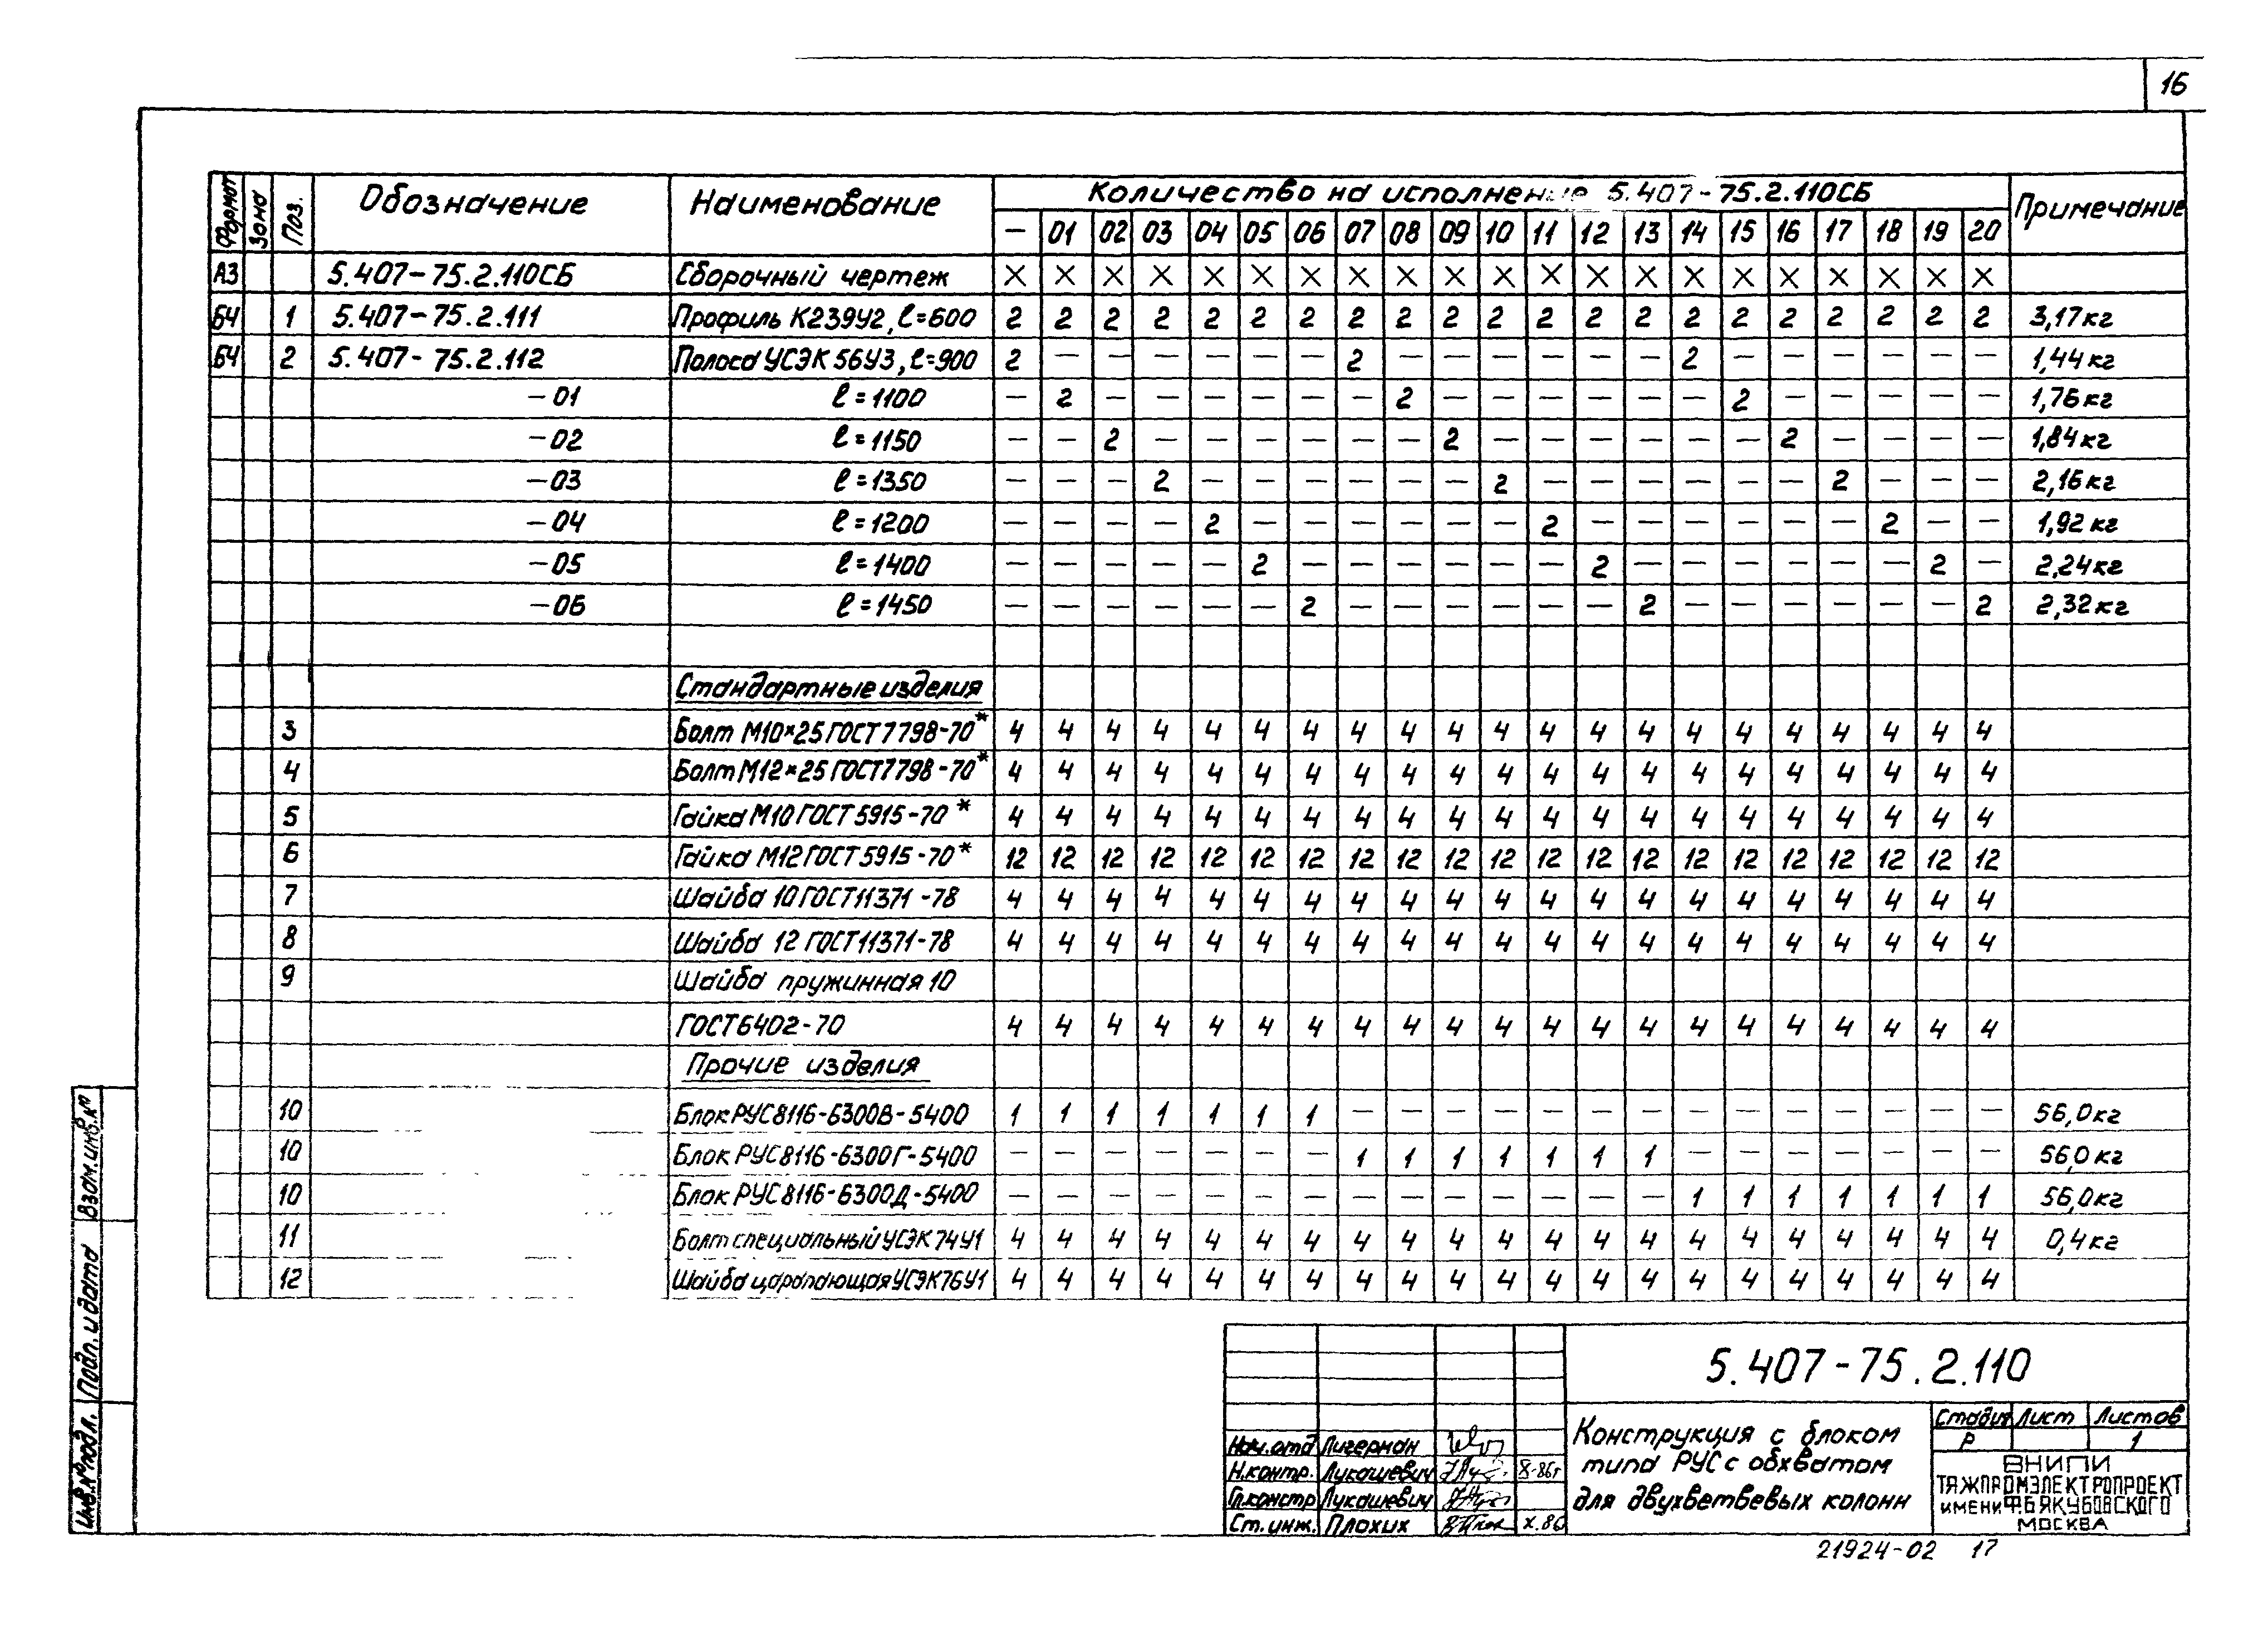 16
Формат Зона Поз. Обозначение Наименование Количество на исполнение 5.407-75.2.110СБ Примечание
— 01 02 03 04 05 06 07 08 09 10 11 12 13 14 15 16 17 18 19 20
А3 5.407-75.2.110СБ Сборочный чертеж × × × × × × × × × × × × × × × × × × × × ×
БЧ 1 5.407-75.2.111 Профиль К239У2, ℓ=600 2 2 2 2 2 2 2 2 2 2 2 2 2 2 2 2 2 2 2 2 2 3,17кг
БЧ 2 5.407-75.2.112 Полоса УСЭК 56У3, ℓ=900 2 — — — — — — 2 — — — — — — 2 — — — — — — 1,44кг
-01 ℓ=1100 — 2 — — — — — — 2 — — — — — — 2 — — — — — 1,76кг
-02 ℓ=1150 — — 2 — — — — — — 2 — — — — — — 2 — — — — 1,84кг
-03 ℓ=1350 — — — 2 — — — — — — 2 — — — — — — 2 — — — 2,16кг
-04 ℓ=1200 — — — — 2 — — — — — — 2 — — — — — — 2 — — 1,92кг
-05 ℓ=1400 — — — — — 2 — — — — — — 2 — — — — — — 2 — 2,24кг
-06 ℓ=1450 — — — — — — 2 — — — — — — 2 — — — — — — 2 2,32кг
Стандартные изделия
3 Болт М10×25 ГОСТ 7798-70* 4 4 4 4 4 4 4 4 4 4 4 4 4 4 4 4 4 4 4 4 4
4 Болт М12×25 ГОСТ 7798-70* 4 4 4 4 4 4 4 4 4 4 4 4 4 4 4 4 4 4 4 4 4
5 Гайка М10 ГОСТ 5915-70* 4 4 4 4 4 4 4 4 4 4 4 4 4 4 4 4 4 4 4 4 4
6 Гайка М12 ГОСТ 5915-70* 12 12 12 12 12 12 12 12 12 12 12 12 12 12 12 12 12 12 12 12 12
7 Шайба 10 ГОСТ 11371-78 4 4 4 4 4 4 4 4 4 4 4 4 4 4 4 4 4 4 4 4 4
8 Шайба 12 ГОСТ 11371-78 4 4 4 4 4 4 4 4 4 4 4 4 4 4 4 4 4 4 4 4 4
9 Шайба пружинная 10
ГОСТ 6402-70 4 4 4 4 4 4 4 4 4 4 4 4 4 4 4 4 4 4 4 4 4
Прочие изделия
10 Блок РУС8116-6300В-5400 1 1 1 1 1 1 1 — — — — — — — — — — — — — — 56,0кг
10 Блок РУС8116-6300Г-5400 — — — — — — — 1 1 1 1 1 1 1 — — — — — — — 56,0кг
10 Блок РУС8116-6300Д-5400 — — — — — — — — — — — — — — 1 1 1 1 1 1 1 56,0кг
11 Болт специальный УСЭК 74У1 4 4 4 4 4 4 4 4 4 4 4 4 4 4 4 4 4 4 4 4 4 0,4кг
12 Шайба царапающая УСЭК76У1 4 4 4 4 4 4 4 4 4 4 4 4 4 4 4 4 4 4 4 4 4
Инв.№подл. Подп. и дата Взам.инв.№
5.407-75.2.110
Конструкция с блоком
типа РУС с обхватом
для двухветвевых колонн
Стадия Лист Листов
Р 1
Нач.отд Лигерман
Н.контр. Лукашевич X-86г
Гл.констр Лукашевич
Ст.инж. Плохих X.86
ВНИПИ
ТЯЖПРОМЭЛЕКТРОПРОЕКТ
ИМЕНИ Ф.Б.ЯКУБОВСКОГО
МОСКВА
21924-02 17